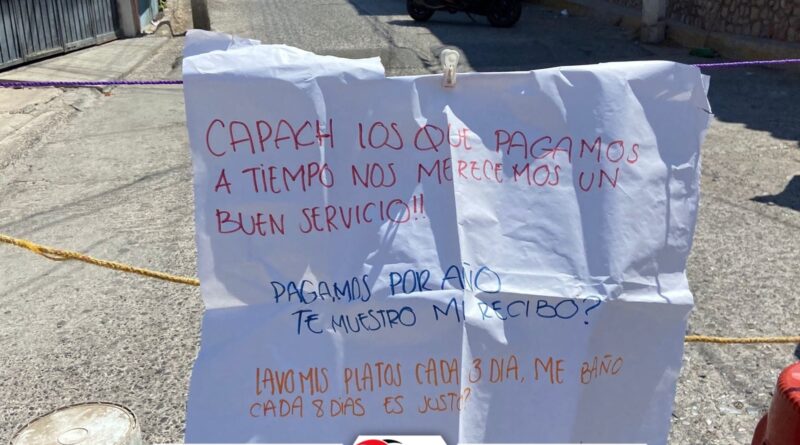 CAPACH LOS QUE PAGAMOS
A TIEMPO NOS MERECEMOS UN
BUEN SERVICIO!!
PAGAMOS POR AÑO
TE MUESTRO MI RECIBO?
LAVO MIS PLATOS CADA 3 DIA, ME BAÑO
CADA 8 DÍAS ES JUSTO?